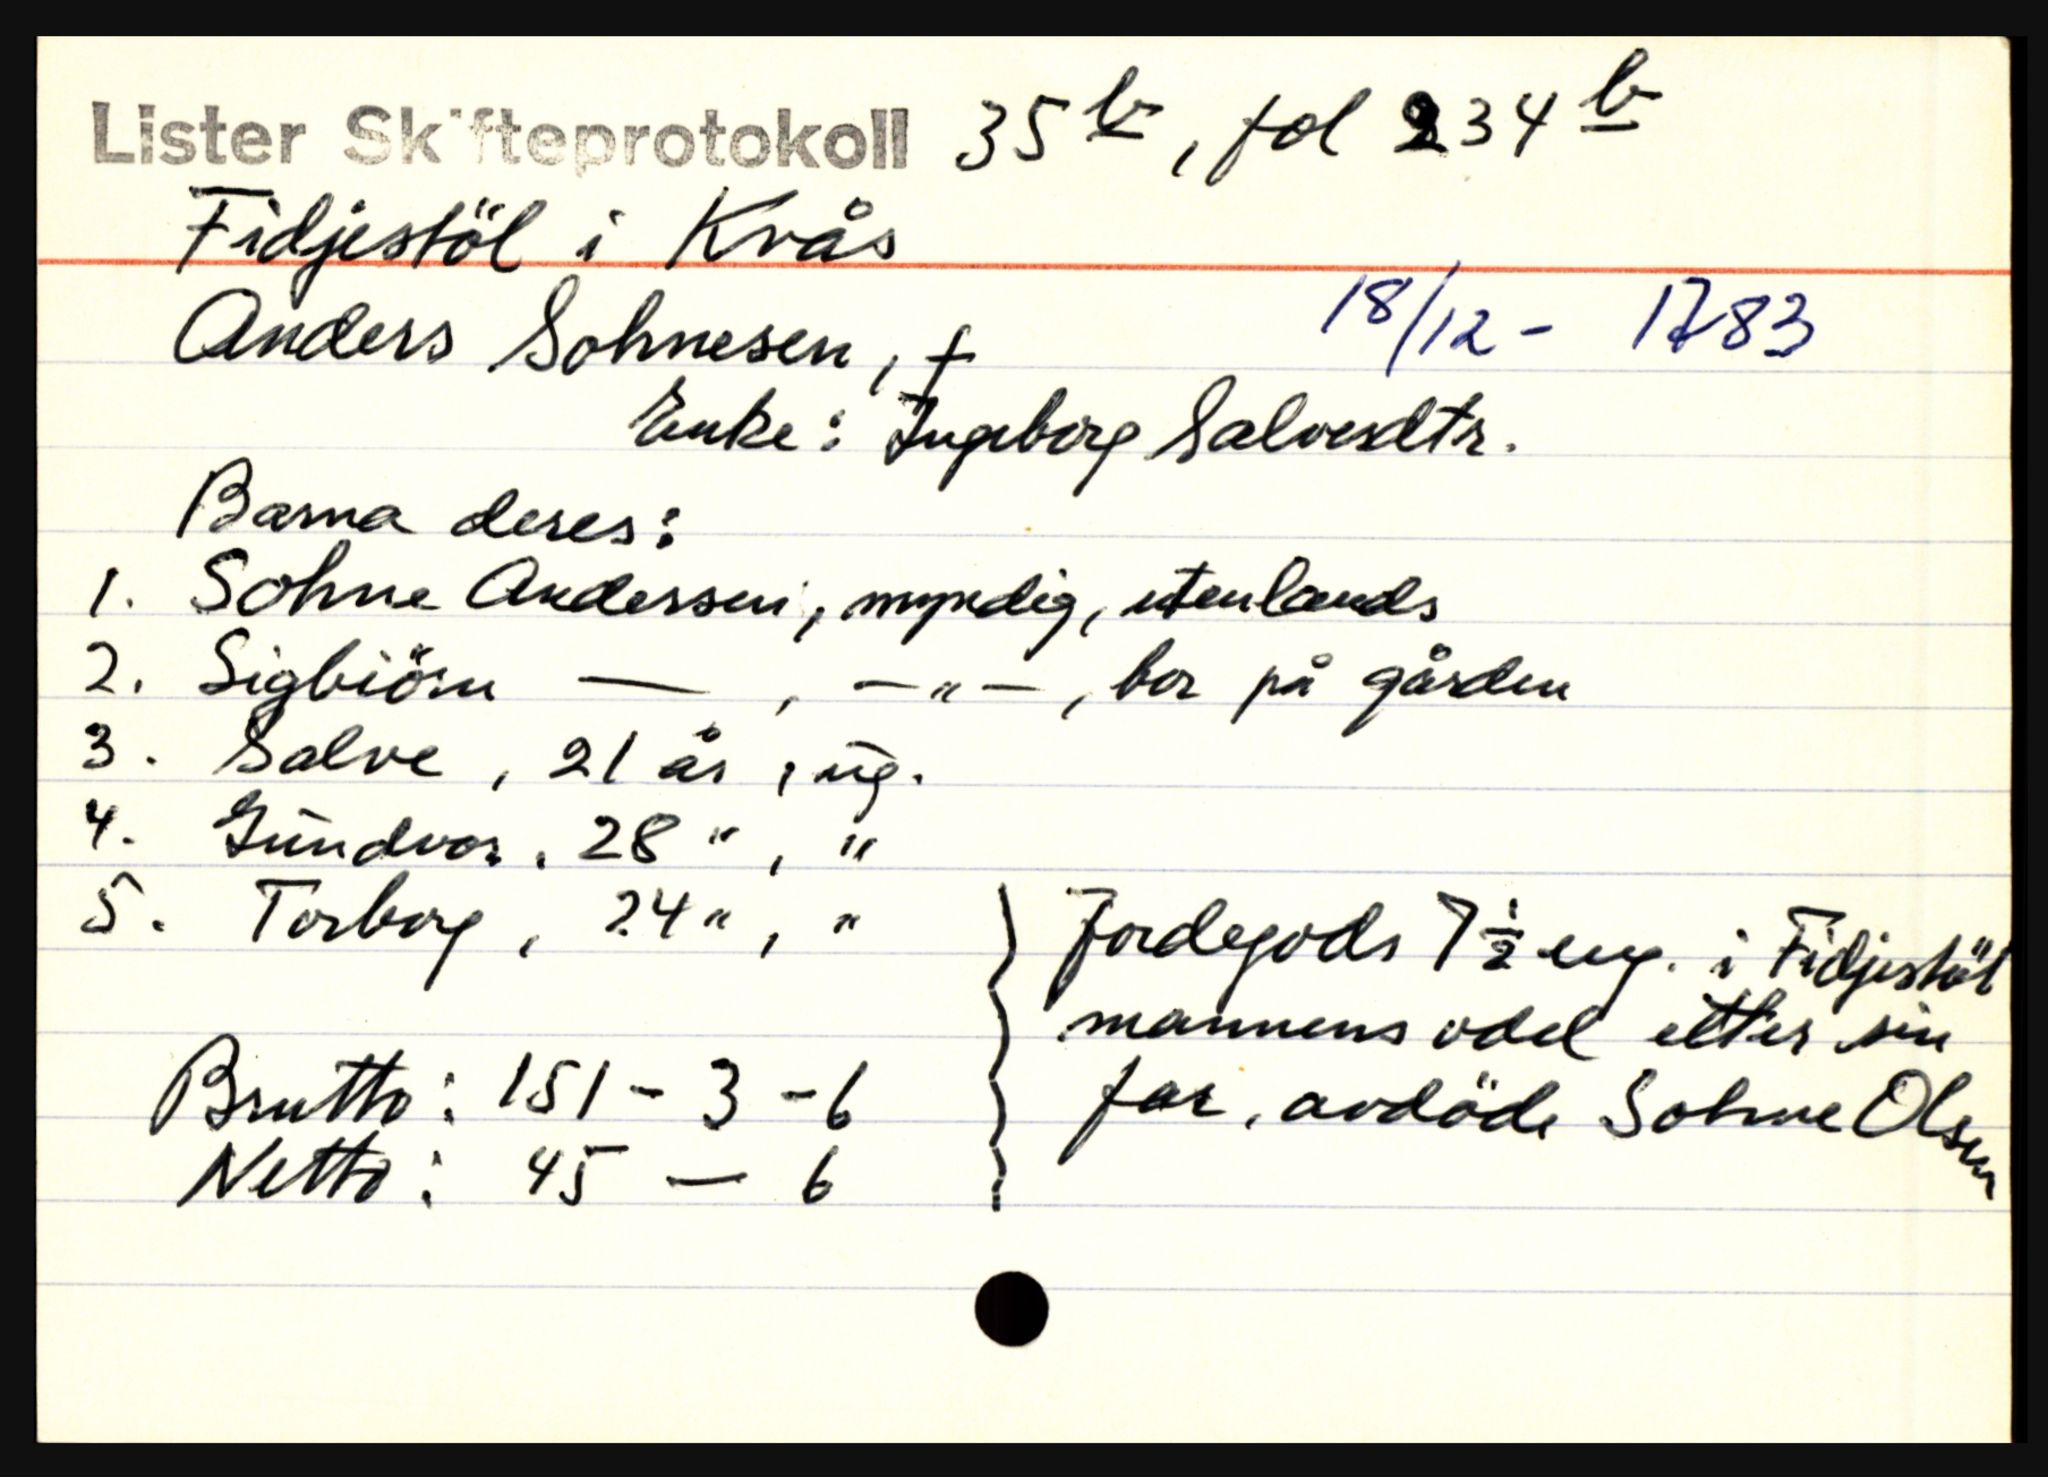 Lister Skifteprotokoll 35 b, fol 234 b
Fidjestöl i Kvås
Anders Sohnesen, † 18/12 - 1783
Enke: Ingeborg Salvesdtr.
Barna deres:
1. Sohne Anderssen, myndig, utenlands
2. Sigbiörn —, —"—, bor på gården
3. Salve, 21 år, ug.
4. Gundvor, 28 ", "
5. Torborg, 24 ", "
Jordegods 7 1/2 eng. i Fidjestöl
mannens odel etter sin
far, avdöde Sohne Olsen
Brutto: 151 - 3 - 6
Netto: 45 — 6